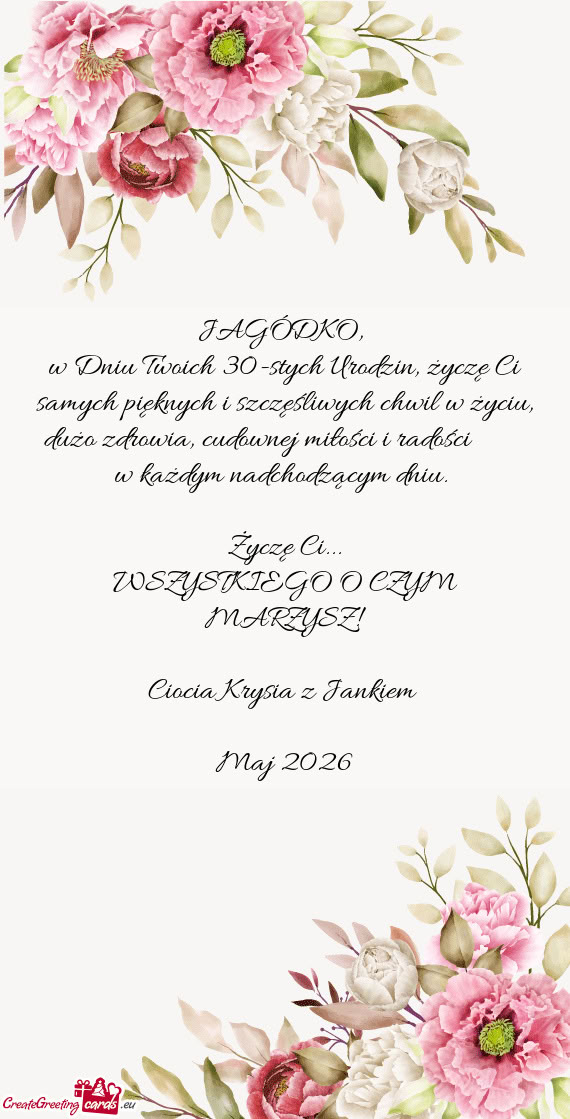 JAGÓDKO,
w Dniu Twoich 30-stych Urodzin, życzę Ci
samych pięknych i szczęśliwych chwil w życiu,
dużo zdrowia, cudownej miłości i radości
w każdym nadchodzącym dniu.
Życzę Ci...
WSZYSTKIEGO O CZYM
MARZYSZ!
Ciocia Krysia z Jankiem
Maj 2026
CreateGreeting cards .eu